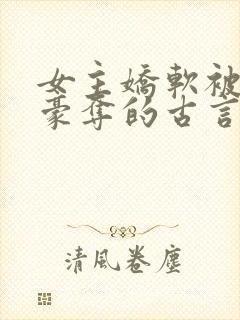 女主嬌軟被
豪奪的古言
清風卷塵